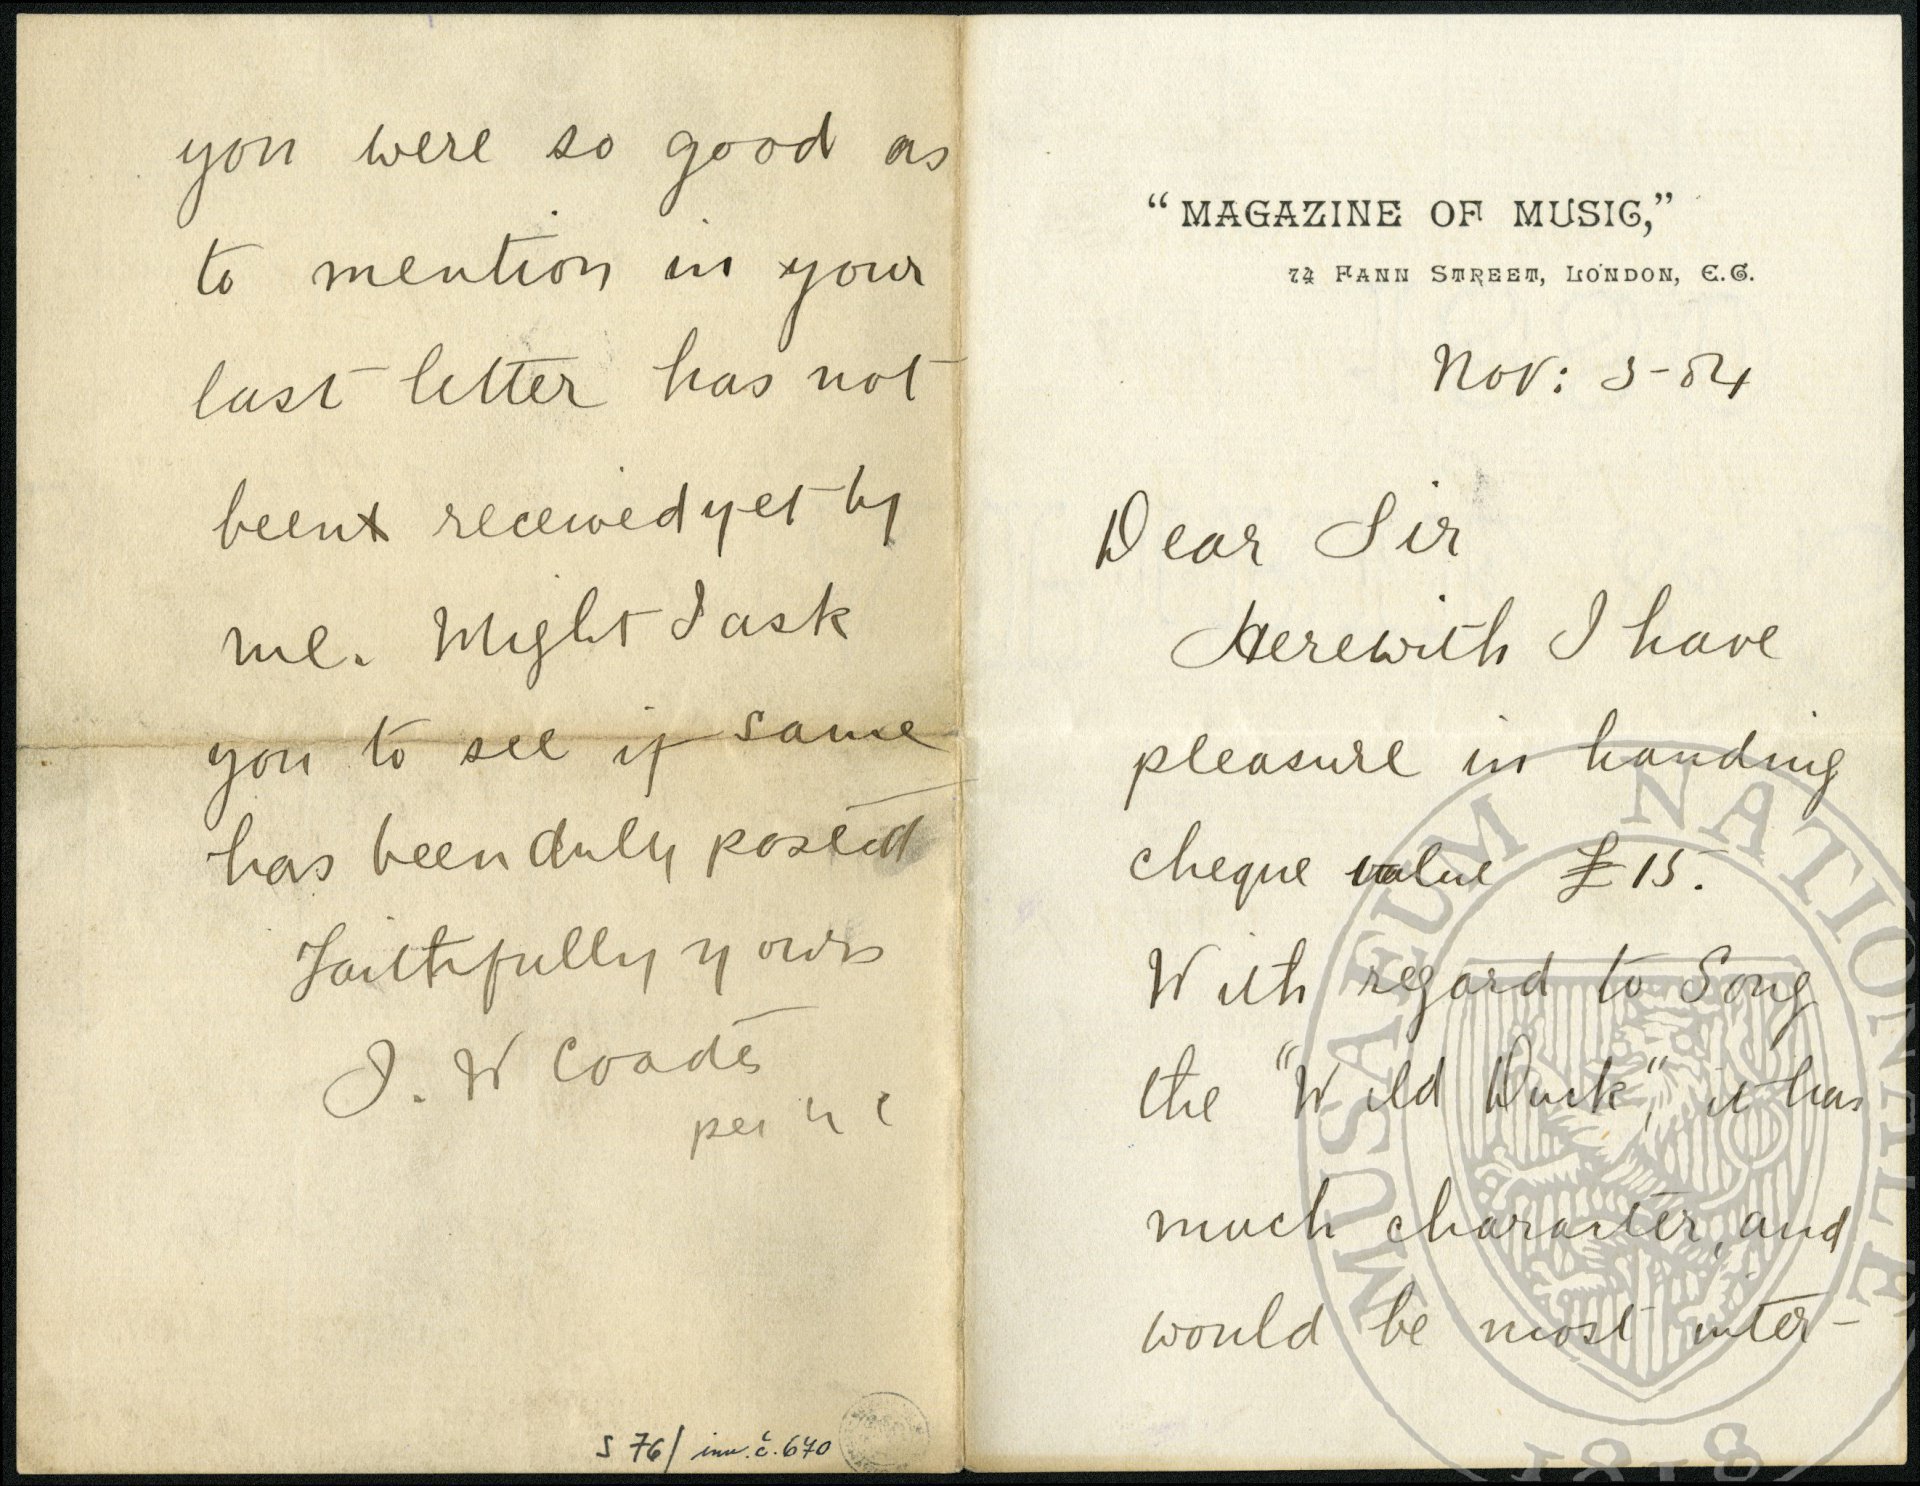 "MAGAZINE OF MUSIC,"
74 FANN STREET, LONDON, E.C.
Nov: 5-84
Dear Sir
Herewith I have
pleasure in handing
cheque value £15.
With regard to Song
the "Wild Duck", it has
much character, and
would be most inter-
you were so good as
to mention in your
last letter has not
been received yet by
me. Might I ask
you to see if same
has been duly posted
Faithfully yours
J. W Coates
per
S 76/ inv. č. 670
MUSAEUM NATIONALE
1818